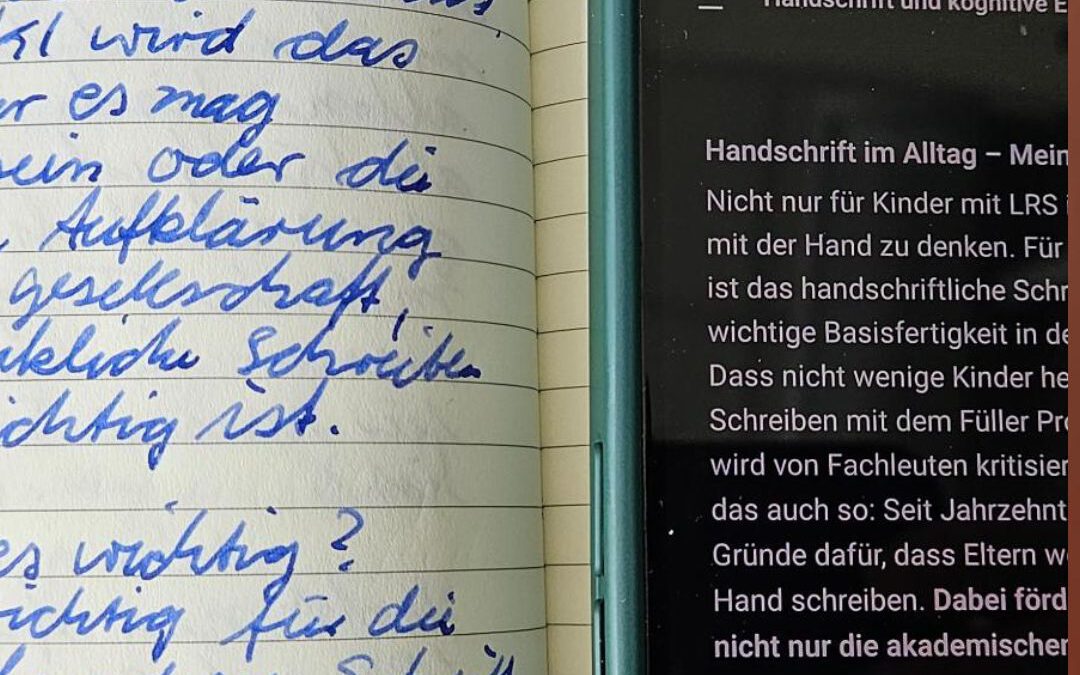 KI wird das
es mag
sein oder die
Aufklärung
gesellschaft,
Schreiben
ichtig ist.
es wichtig?
ichtig für die
Handschrift und kognitive E
Handschrift im Alltag – Mein
Nicht nur für Kinder mit LRS i
mit der Hand zu denken. Für
ist das handschriftliche Schr
wichtige Basisfertigkeit in de
Dass nicht wenige Kinder he
Schreiben mit dem Füller Pro
wird von Fachleuten kritisier
das auch so: Seit Jahrzehnt
Gründe dafür, dass Eltern we
Hand schreiben. Dabei förd
nicht nur die akademischen